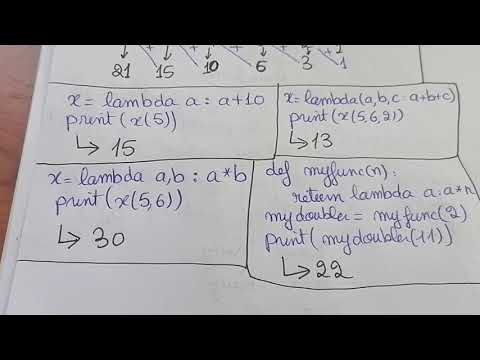 21 15 10 6 3 1
x = lambda a : a+10
print(x(5))
15
x = lambda(a,b,c : a+b+c)
print(x(5,6,2))
13
x = lambda a,b : a*b
print(x(5,6))
30
def myfunc(n):
return lambda a:a*n
mydoubler = myfunc(2)
print(mydoubler(11))
22